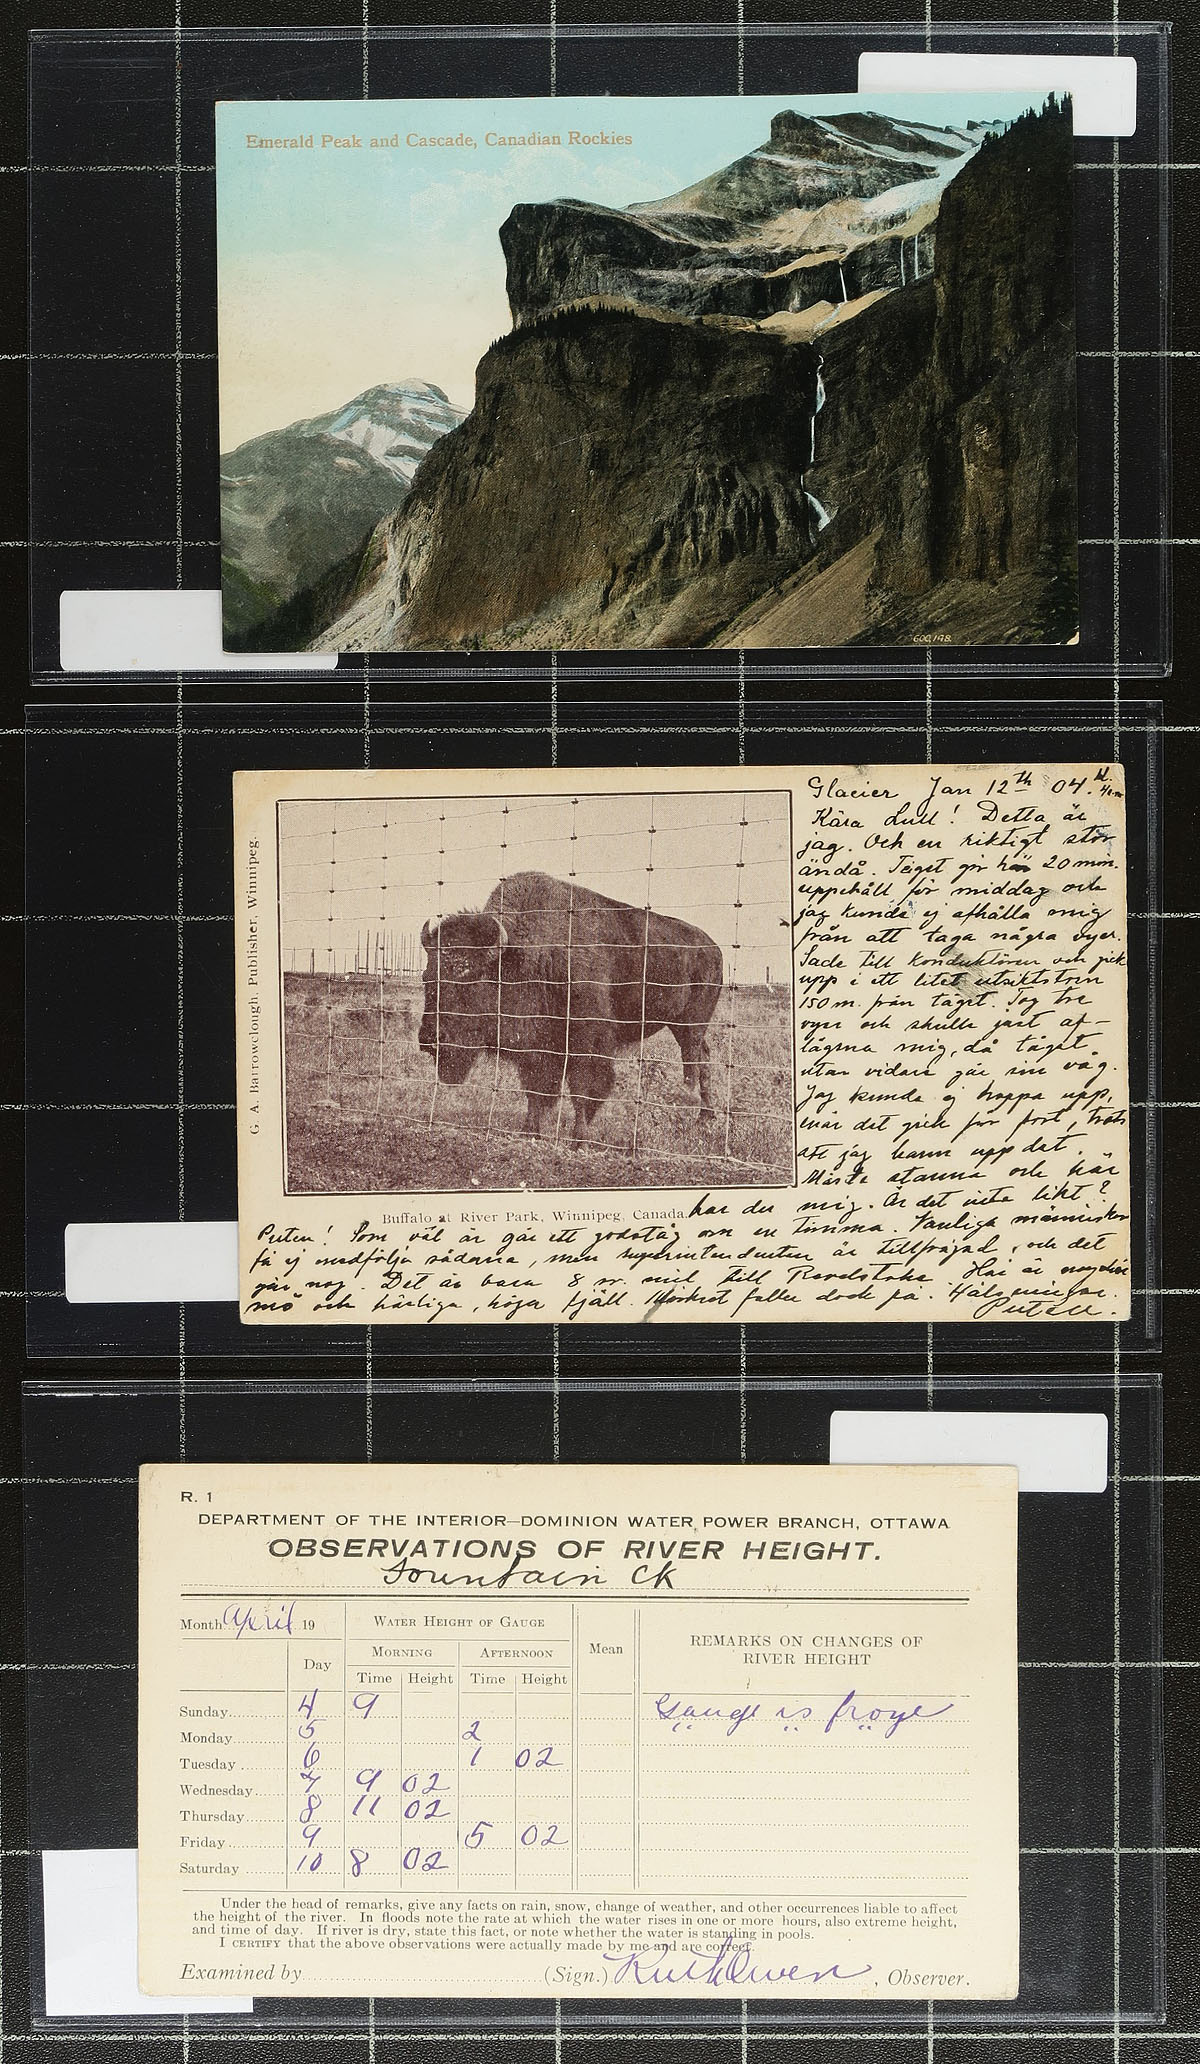 Emerald Peak and Cascade, Canadian Rockies
600,178.
G. A. Barrowclough, Publisher, Winnipeg.
Buffalo at River Park, Winnipeg, Canada.
Glacier Jan 12th 04.
Kära Lull! Detta är
jag. Och en riktigt stor
ändå. Tåget gör här 20 min.
uppehåll för middag och
jag kunde ej afhålla mig
från att taga några vyer.
Sade till konduktören och gick
upp i ett litet utsiktstorn
150 m. från tåget. Tog tre
vyer och skulle just af-
lägsna mig, då tåget
utan vidare går sin väg.
Jag kunde ej hoppa upp,
när det gick för fort, trots
att jag hann upp det.
Måste stanna och här
har du mig. Är det inte likt?
Puten! Som väl är går ett godståg om en timma. Vanliga människor
få ej medfölja sådana, men superintendenten är tillfrågad, och det
går nog. Det är bara 8 sv. mil till Revelstoke. Här är
snö och härliga, höga fjäll. Mörkret faller dock på. Hälsningar.
Puten.
R. 1
DEPARTMENT OF THE INTERIOR—DOMINION WATER POWER BRANCH, OTTAWA
OBSERVATIONS OF RIVER HEIGHT.
Fountain Ck
Month April 19 WATER HEIGHT OF GAUGE Mean REMARKS ON CHANGES OF RIVER HEIGHT
Day MORNING AFTERNOON
Time Height Time Height
Sunday 4 9 Gauge is froze
Monday 5 2 " " "
Tuesday 6 1 02
Wednesday 7 9 02
Thursday 8 11 02
Friday 9 5 02
Saturday 10 8 02
Under the head of remarks, give any facts on rain, snow, change of weather, and other occurrences liable to affect
the height of the river. In floods note the rate at which the water rises in one or more hours, also extreme height,
and time of day. If river is dry, state this fact, or note whether the water is standing in pools.
I CERTIFY that the above observations were actually made by me and are correct.
Examined by (Sign.) Ruth Owen, Observer.